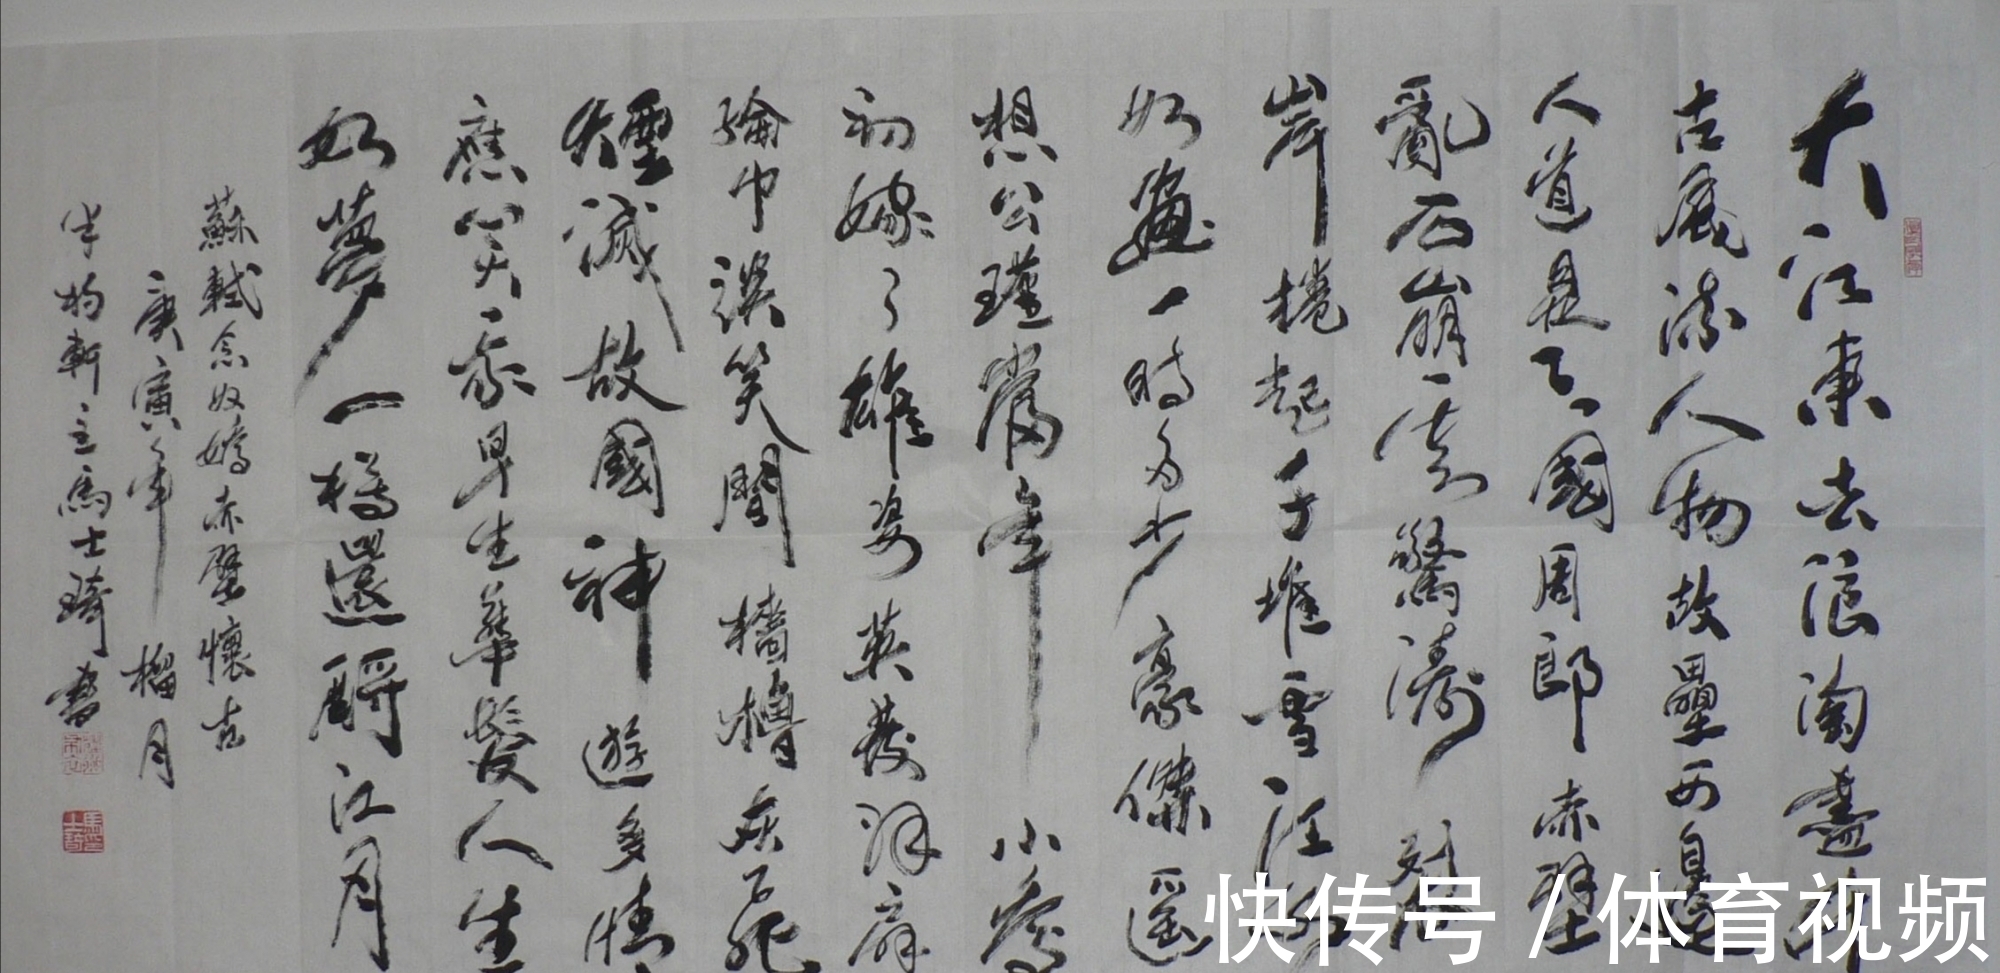 大江東去浪淘盡千
古風流人物故壘西邊
人道是三國周郎赤壁
亂石崩雲驚濤
岸捲起千堆雪江
如畫一時多少豪傑遙
想公瑾當年小喬
初嫁了雄姿英發羽扇
綸巾談笑間檣櫓灰飛
煙滅故國神遊多情
應笑我早生華髮人生
如夢一樽還酹江月
蘇軾念奴嬌赤壁懷古
庚寅年榴月
半軒主馬士琦書
快传号/体育视频